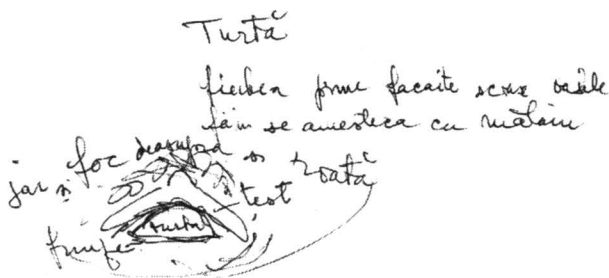 Turtă
fierben prune facaite scoase oasele
făin se amesteca cu mălaiu
jar și foc deasupra și roată
test
turta
frunze